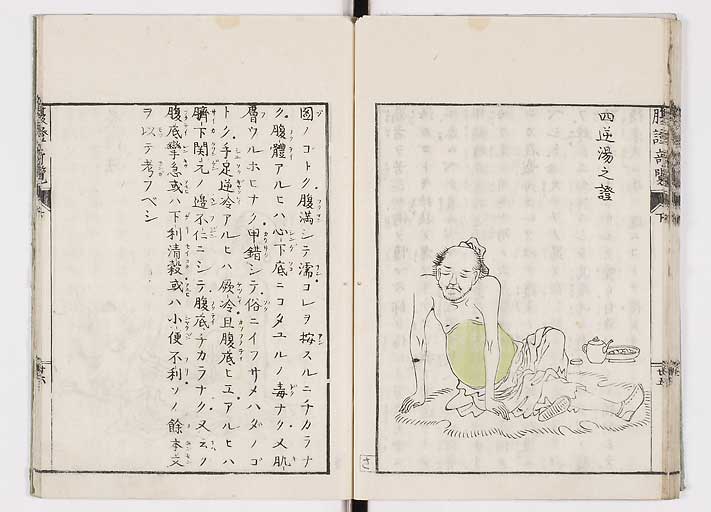 四逆湯之證
圖ノコトク腹滿シテ濡コレヲ按スルニチカラナ
ク腹體アルヒハ心下底ニコタユルノ毒ナク又肌
層ウルホヒナク甲錯シテ俗ニイフサメハダノゴ
トク手足逆冷アルヒハ厥冷且腹底ヒエアルヒハ
臍下関元ノ邉不仁ニシテ腹底チカラナク又云ク
腹底攣急或ハ下利清穀或ハ小便不利ソノ餘本文
ヲ以テ考フベシ